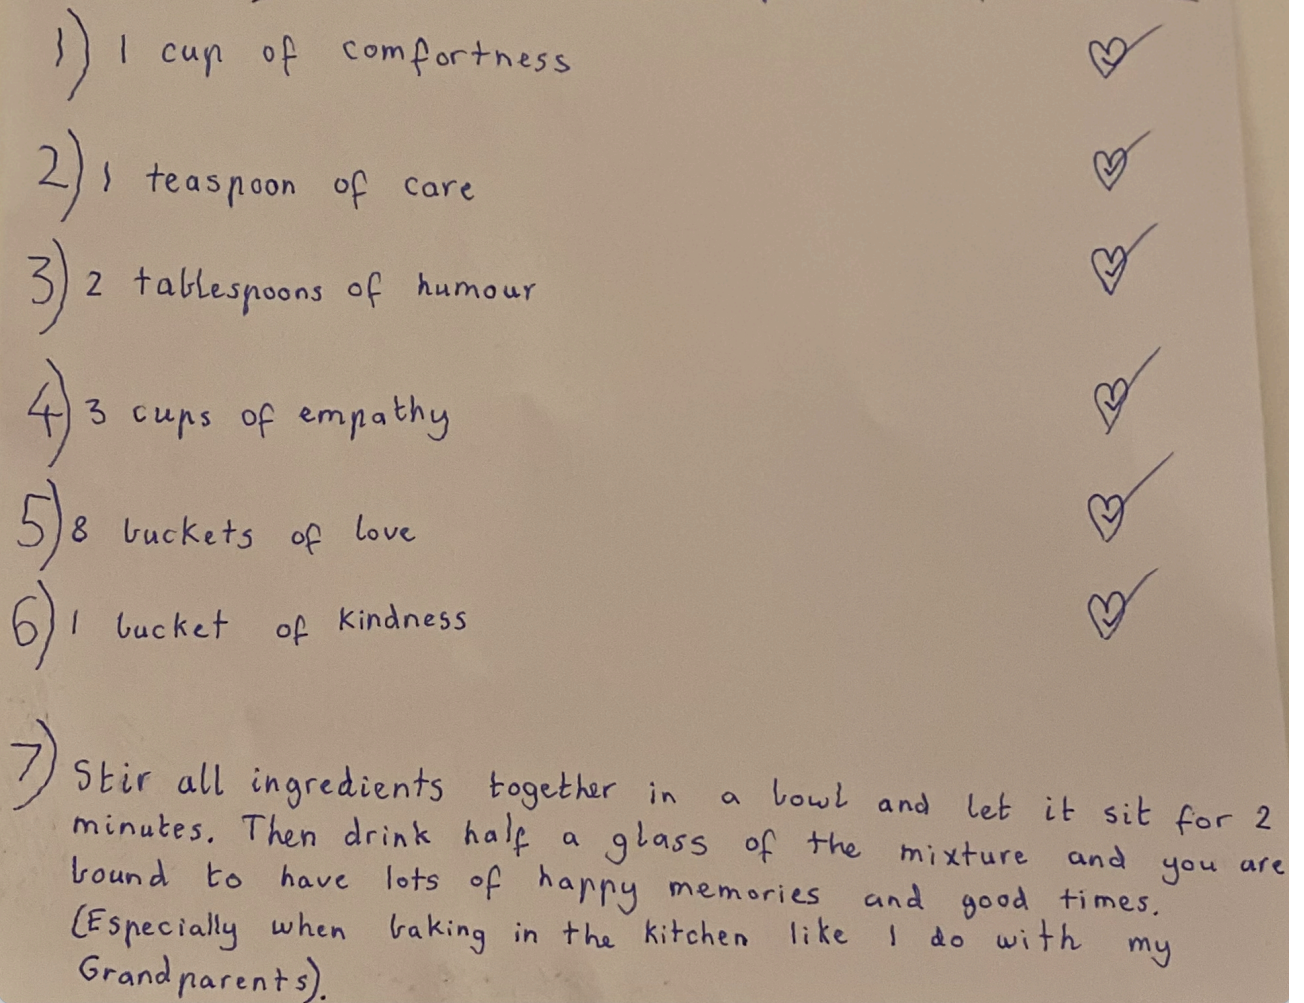 1) 1 cup of comfortness
2) 1 teaspoon of care
3) 2 tablespoons of humour
4) 3 cups of empathy
5) 8 buckets of love
6) 1 bucket of kindness
7) Stir all ingredients together in a bowl and let it sit for 2
minutes. Then drink half a glass of the mixture and you are
bound to have lots of happy memories and good times.
(Especially when baking in the kitchen like I do with my
Grandparents).